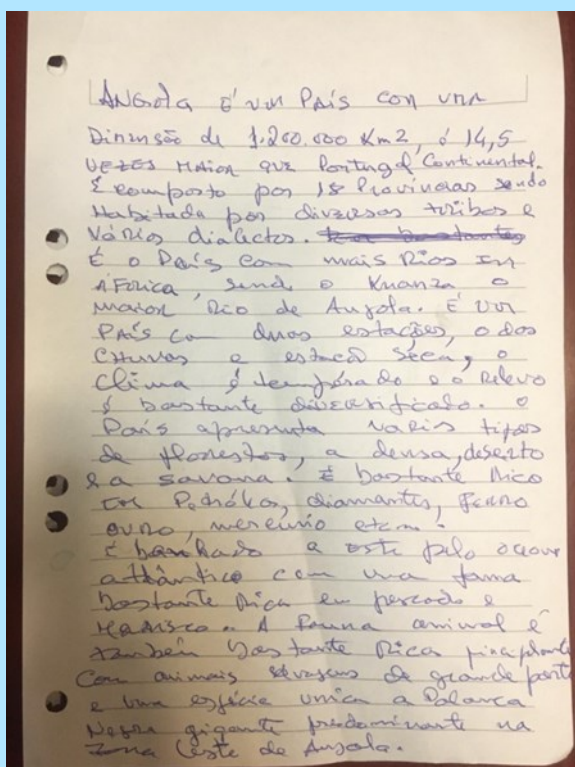 ANGOLA É UM PAÍS COM UMA
Dimensão de 1.260.000 Km2, é 14,5
VEZES MAIOR QUE Portugal Continental.
É composto por 18 Provincias sendo
Habitada por diversos tribos e
Vários dialectos.
É o País com mais Rios Em
AFrica, send o Kuanza o
maior Rio de Angola. É um
País com duas estações, o das
CHuvas e estacão Seca, o
Clima é temporado e o Relevo
é bastante diversificado. o
País apresenta varis tipos
de florestas, a densa, deserto
e a savana. É bastante Rico
em Petróleo, diamantes, Ferro
ouro, mercúrio
É banhado a este pelo oceano
atlântico com uma fama
bastante Rica em pescado e
Marisco. A Fauna animal é
também bastante Rica
Com animais selvagens de grande porte
e uma espécie unica a Palanca
Negra gigante predominante na
zona Leste de Angola.